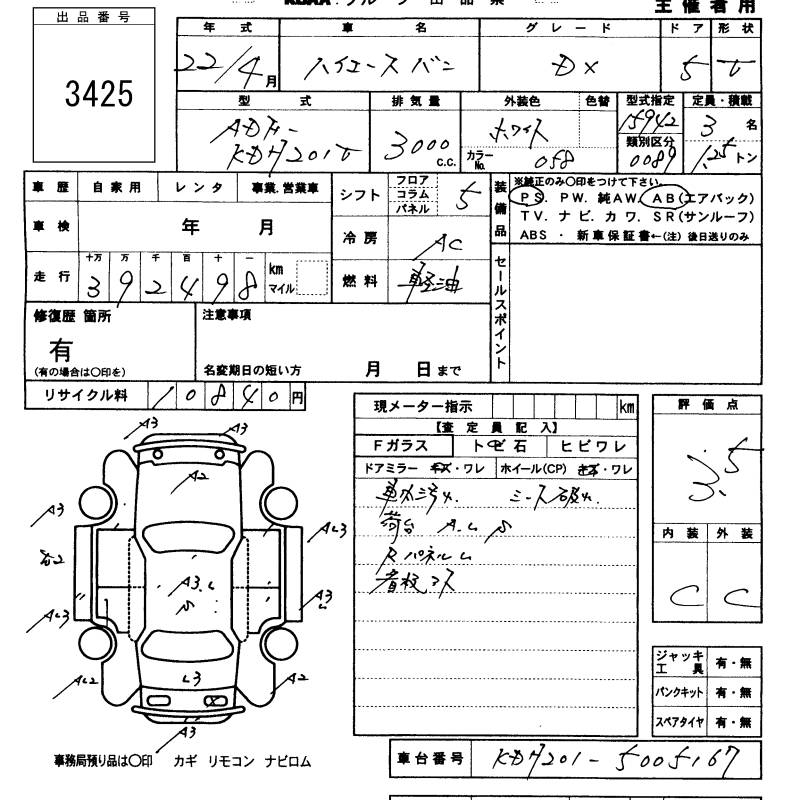 主催者用
出品番号
3425
年式 車名 グレード ドア 形状
22/4月 ハイエースバン DX 5 V
型式 排気量 外装色 色替 型式指定 定員・積載
15942
3名
KDH201V 3000 C.C. ホワイト
カラーNo. 058
類別区分
0089
1.25トン
車歴 自家用 レンタ 事業.営業車
シフト フロア コラム パネル 5
装備品
※純正のみ〇印をつけて下さい。
PS. PW. 純AW. AB(エアバック)
TV. ナビ. カワ. SR(サンルーフ)
ABS ・ 新車保証書←(注) 後日送りのみ
車検 年 月
冷房 AC
走行 十万 万 千 百 十 一
392498 km マイル
燃料 軽油
セールスポイント
修復歴 箇所
有
(有の場合は〇印を)
注意事項
名変期日の短い方 月 日まで
リサイクル料 10840円
現メーター指示 km
【査定員記入】
Fガラス トビ石 ヒビワレ
ドアミラー キズ・ワレ ホイール(CP) キズ・ワレ
荷台 A.L S
Rパネル L
看板コス
評価点
3.5
内装 外装
C C
ジャッキ工具 有・無
パンクキット 有・無
スペアタイヤ 有・無
A3 A3
A2
A3
AL3
AL3
A3.L
S
A3
L
L3
AL2
A2
X
A3
事務局預り品は〇印 カギ リモコン ナビロム
車台番号 KDH201-5005167